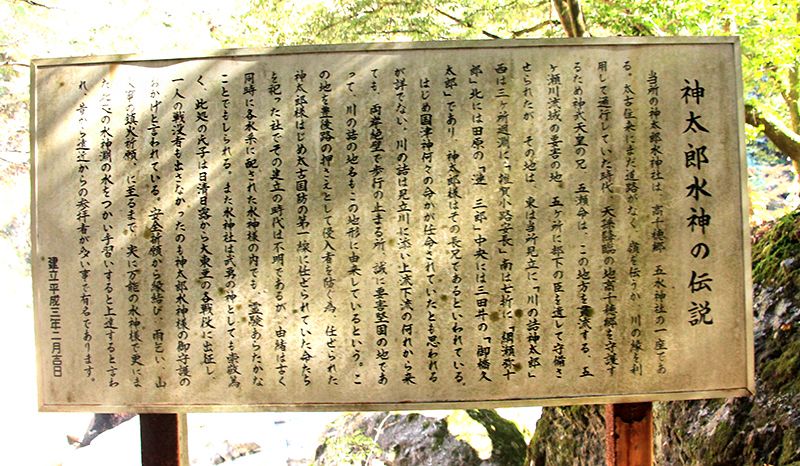 神太郎水神の伝説
当所の神太郎水神社は、高千穂郷 五水神社の一座であ
る。太古往来にまだ道路がなく、嶺を伝うか、川の縁を利
用して通行していた時代、天孫降臨の地高千穂郷を守護す
るため神武天皇の兄 五瀬命は、この地方を流する 五
ヶ瀬川流域の要害の地、五ヶ所に部下の臣を遣して守備さ
せられたが、その地は、東は当所見立に「川の詰神太郎」
西は三ヶ所廻渕に「雑賀小路安長」南は七折に「綱瀬弥十
郎」北には田原の「逢 三郎」中央には三田井の「御橋久
太郎」であり、神太郎様はその長兄であるといわれている。
はじめ国津神何々の命かが任命されていたとも思われる
が詳でない。川の詰は見立川に添い上流下流の何れから来
ても、両岸絶壁で歩行の止まる所、誠に要害堅固の地であ
って、川の詰の地名も、この地形に由来しているという。こ
の地を豊後路の押さえとして侵入者を防ぐ為、任せられた
神太郎様はじめ太古国防の第一線に任せられていた命たち
を祀った社でその建立の時代は不明であるが、由緒は古く
同時に各水系に配された水神様の内でも、霊験あらたかな
ことでもしられる。また水神社は武勇の神としても崇敬篤
く、此処の氏子は日清日露から大東亜の各戦役に出征し
一人の戦没者も出さなかったのも神太郎水神様の御守護の
おかげと言われている。安全祈願から縁結び、雨とい、山
火事の鎮火祈願、に至るまで、実に万能の水神様で更にま
た の水神渕の水をつかい手習いすると上達すると言わ
れ、昔から遠近からの参拝者が多い事で有名であります。
建立平成三年二月吉日